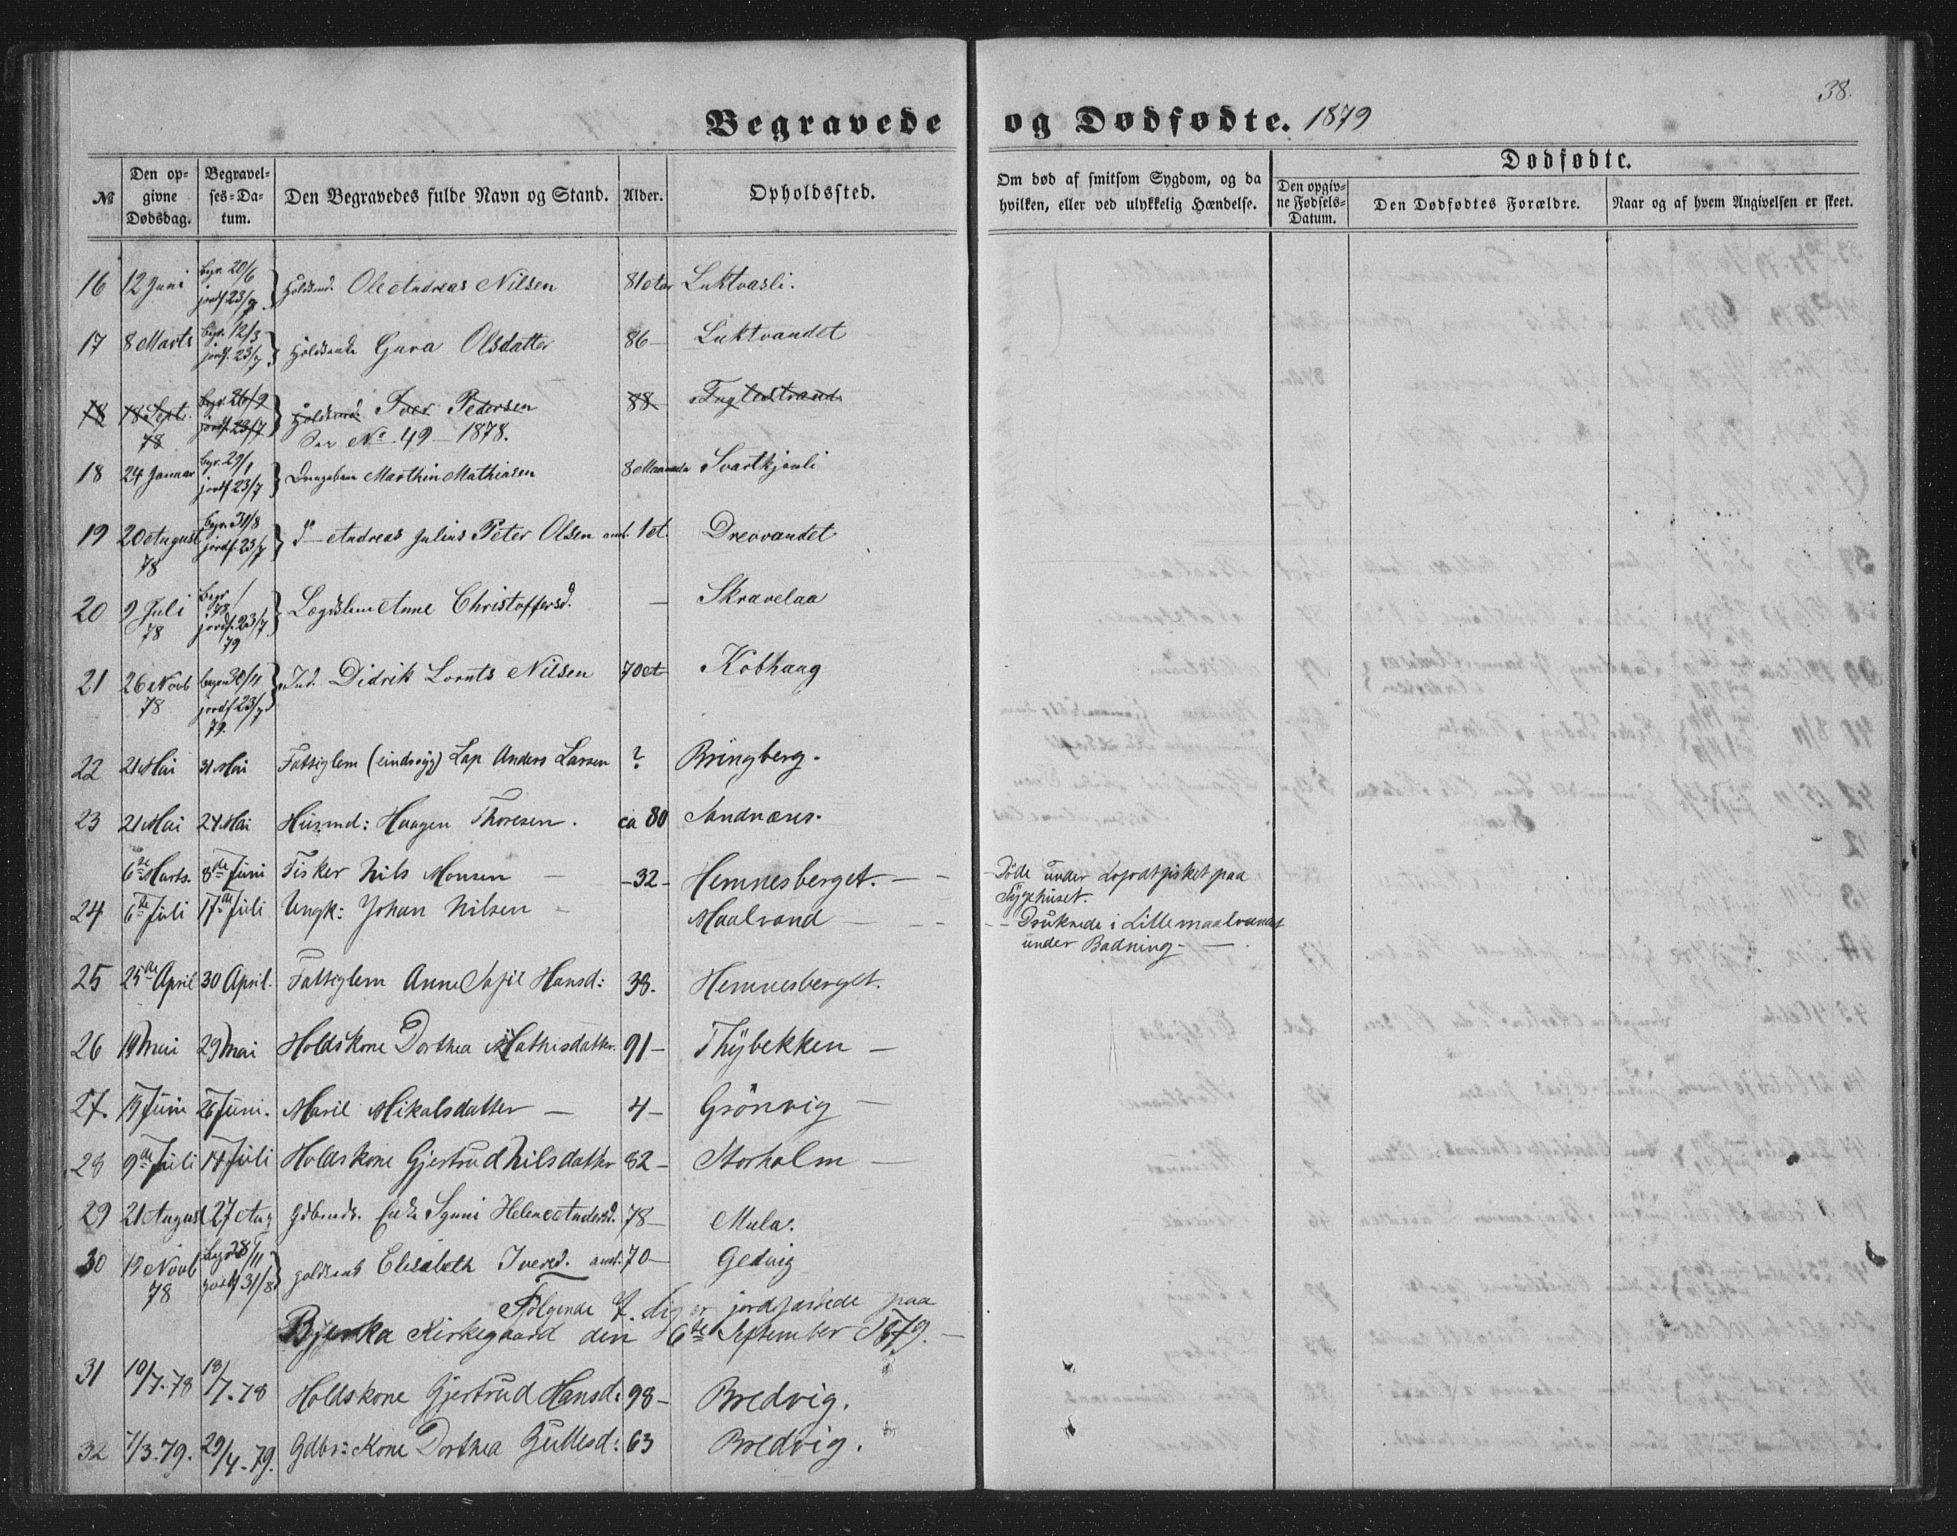 38.
Begravede og Dødfødte. 1879
№
Den opgivne Dødsdag.
Begravelses-Datum.
Den Begravedes fulde Navn og Stand.
Alder.
Opholdssted.
Om død af smitsom Sygdom, og da hvilken, eller ved ulykkelig Hændelse.
Dødfødte.
Den opgivne Fødsels-Datum.
Den Dødfødtes Forældre.
Naar og af hvem Angivelsen er skeet.
16 12 Juni begr. 20/6 jordf. 23/7 Holdsmd. Ole Andreas Nilsen 81 Luktvasli.
17 8 Marts begr. 12/3 jordf. 23/7 Guva Olsdatter 86 – Luktvandet
18 18 Sept. 78 begr. 26/9 jordf. 23/7 Holdsmd. Iver Pedersen 88 Fuglestrand
Se № 49 – 1878.
18 24 Januar begr. 29/1 jordf. 23/7 Drengebarn Marthin Mathiasen 8 Maaneder Svartkjønli
19 20 August 78 begr. 31/8 jordf. 23/7 d – Andreas Julius Peter Olsen 1 Drevvandet
20 9 Juli 78 begr. / 78 jordf. 23/7 79 Lægdslem Anne Christoffersd. – Skravelaa
21 26 Novb 78 jordf. 23/7 79. Ind. Didrik Lornts Nilsen 70 Kobhaug
22 21 Mai 31 Mai Fattiglem (sindssyg) Lap Anders Larsen ? Bringberg.
23 21 Mai 24 Mai Husmd: Haagen Thoresen. ca 80 Sandnæss.
6te Marts. 8de Juni Fisker Nils Monsen – –32– Hemnesberget. – – Döde under Lofodtfisket paa
Sygehuset.
24 6te Juli 17de Juli Ungk: Johan Nilsen – Maalvand – – – – Druknede i Lillemaalvandet
under Badning – –.
25 25de April 30 April. Fattiglem Anne Sofie Hansd: 38. Hemnesberget.
26 19 Mai 29 Mai Holdskone Dorthea Mathisdatter. 91 – Thybekken –
27. 19 Juni 26 Juni. Marie Mikalsdatter – 4 – Grönvig –
28 9de Juli 14 Juli Holdskone Gjertrud Nilsdatter 82 – Storholm –
29 21 August 27 Aug Gdbrmds. Enke Synni Helene Andersd. 78 – Mula.
30 19 Novb 78 begr. 28/11 jordf. 31/8 Elisabeth Iversd. 70 – Gedvig
Følgende 7. Lig er jordfæstede paa
Bjerka Kirkegaard den 6te September 1879. –
31 10/7.78 18/7.78 Holdskone Gjertrud Hansd: 98 – Bredvig.
32 7/3.79. 29/4.79. Gdbr: Kone Dorthea Gullesd: 63 Bredvig.